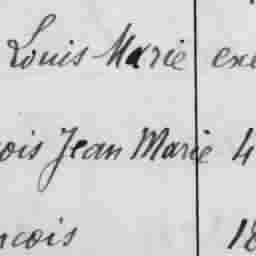 Louis Marie exe
ois Jean Marie 4
ncois 18